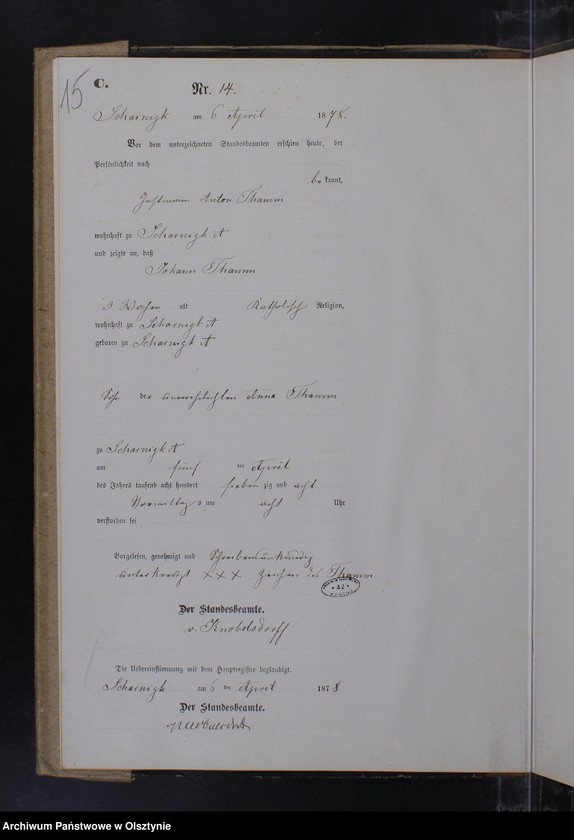 15
C.
Nr. 14.
Scharnigk am 6 April 1878.
Vor dem unterzeichneten Standesbeamten erschien heute, der
Persönlichkeit nach
be kannt,
Instmann Anton Thamm
wohnhaft zu Scharnigk A
und zeigte an, daß
Johann Thamm
3 Wochen alt Katholisch Religion,
wohnhaft zu Scharnigk A
geboren zu Scharnigk A
Sohn der unverehelichten Anna Thamm
zu Scharnigk A
am fünf ten April
des Jahrs tausend acht hundert sieben zig und acht
Vormittag s um acht Uhr
verstorben sei
Vorgelesen, genehmigt und Schreibensunkundig
unterkreuzt xxx Zeichen des Thamm
42
Der Standesbeamte.
v. Knobelsdorff
Die Uebereinstimmung mit dem Hauptregister beglaubigt.
Scharnigk am 6 ten April 1878.
Der Standesbeamte.
v. Knobelsdorff
Archiwum Państwowe w Olsztynie